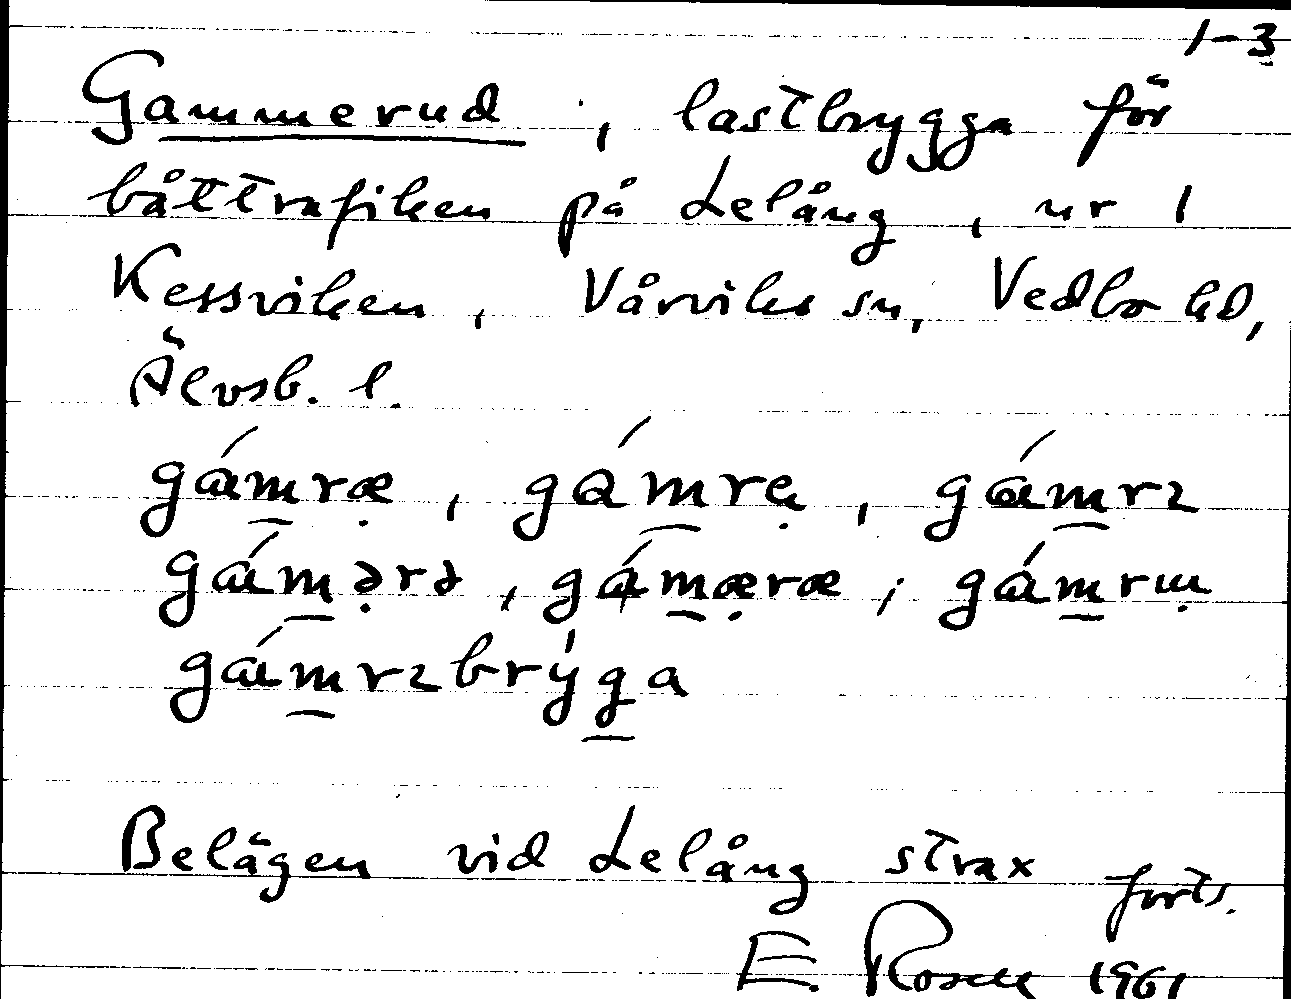 1-3
Gammerud, lastbrygga för
båttrafiken på Lelång, nr 1
Kessviken, Vårviks sn, Vedbo hd,
Älvsb. l.
gámræ, gámrɐ, gámrɿ
gámərə, gámæræ, gámrɯ
gámrɿbrýga
Belägen vid Lelång strax forts.
E. Rosell 1961